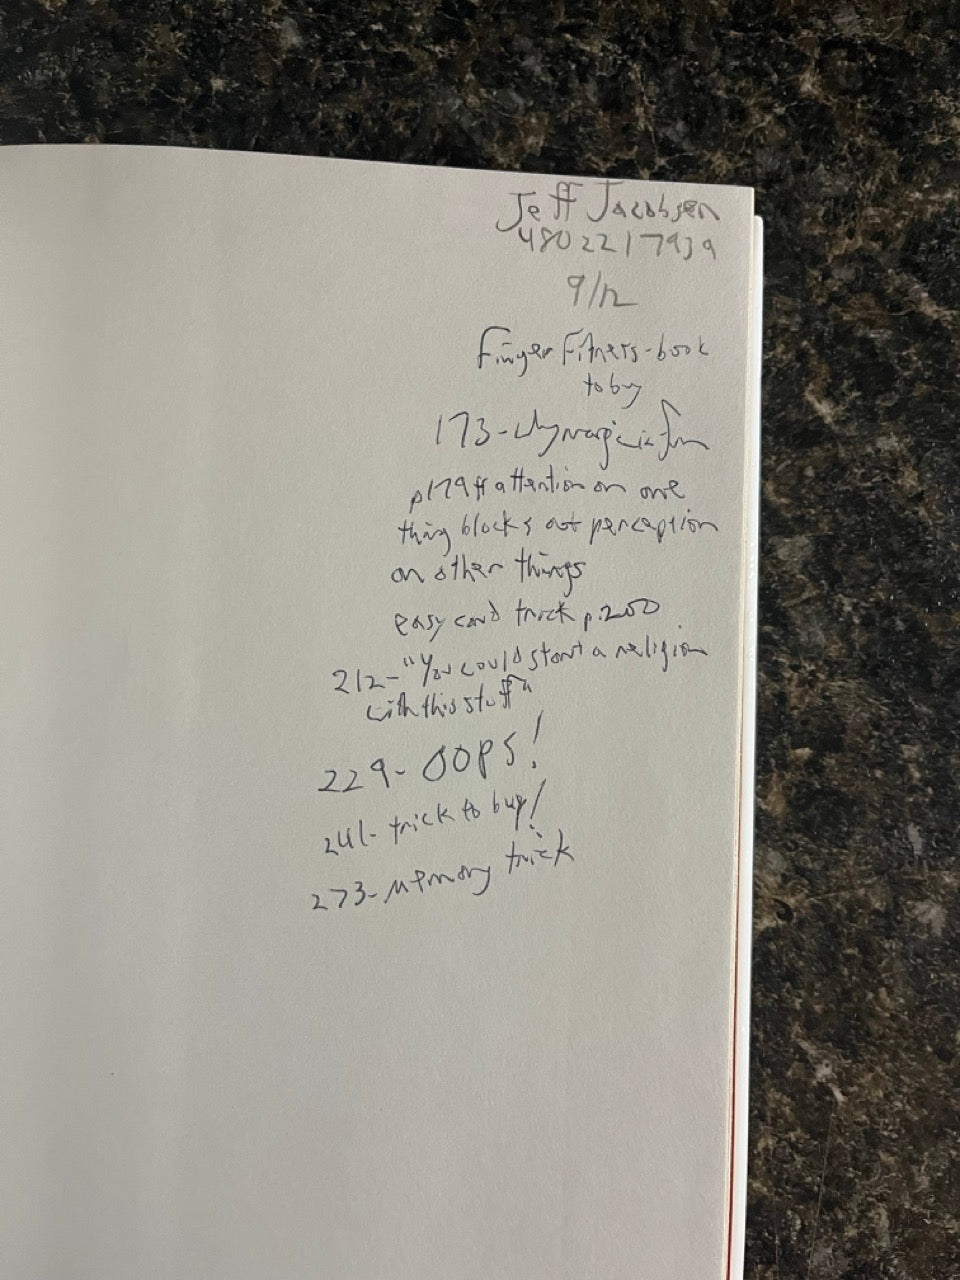 Jeff Jacobsen
4802217939
9/12
Finger Fitness-book
to buy
173-Why magic is fun
p179ff attention on one
thing blocks out perception
on other things
easy card trick p.200
212-"You could start a religion
with this stuff"
229- OOPS!
241- trick to buy!
273-Memory trick